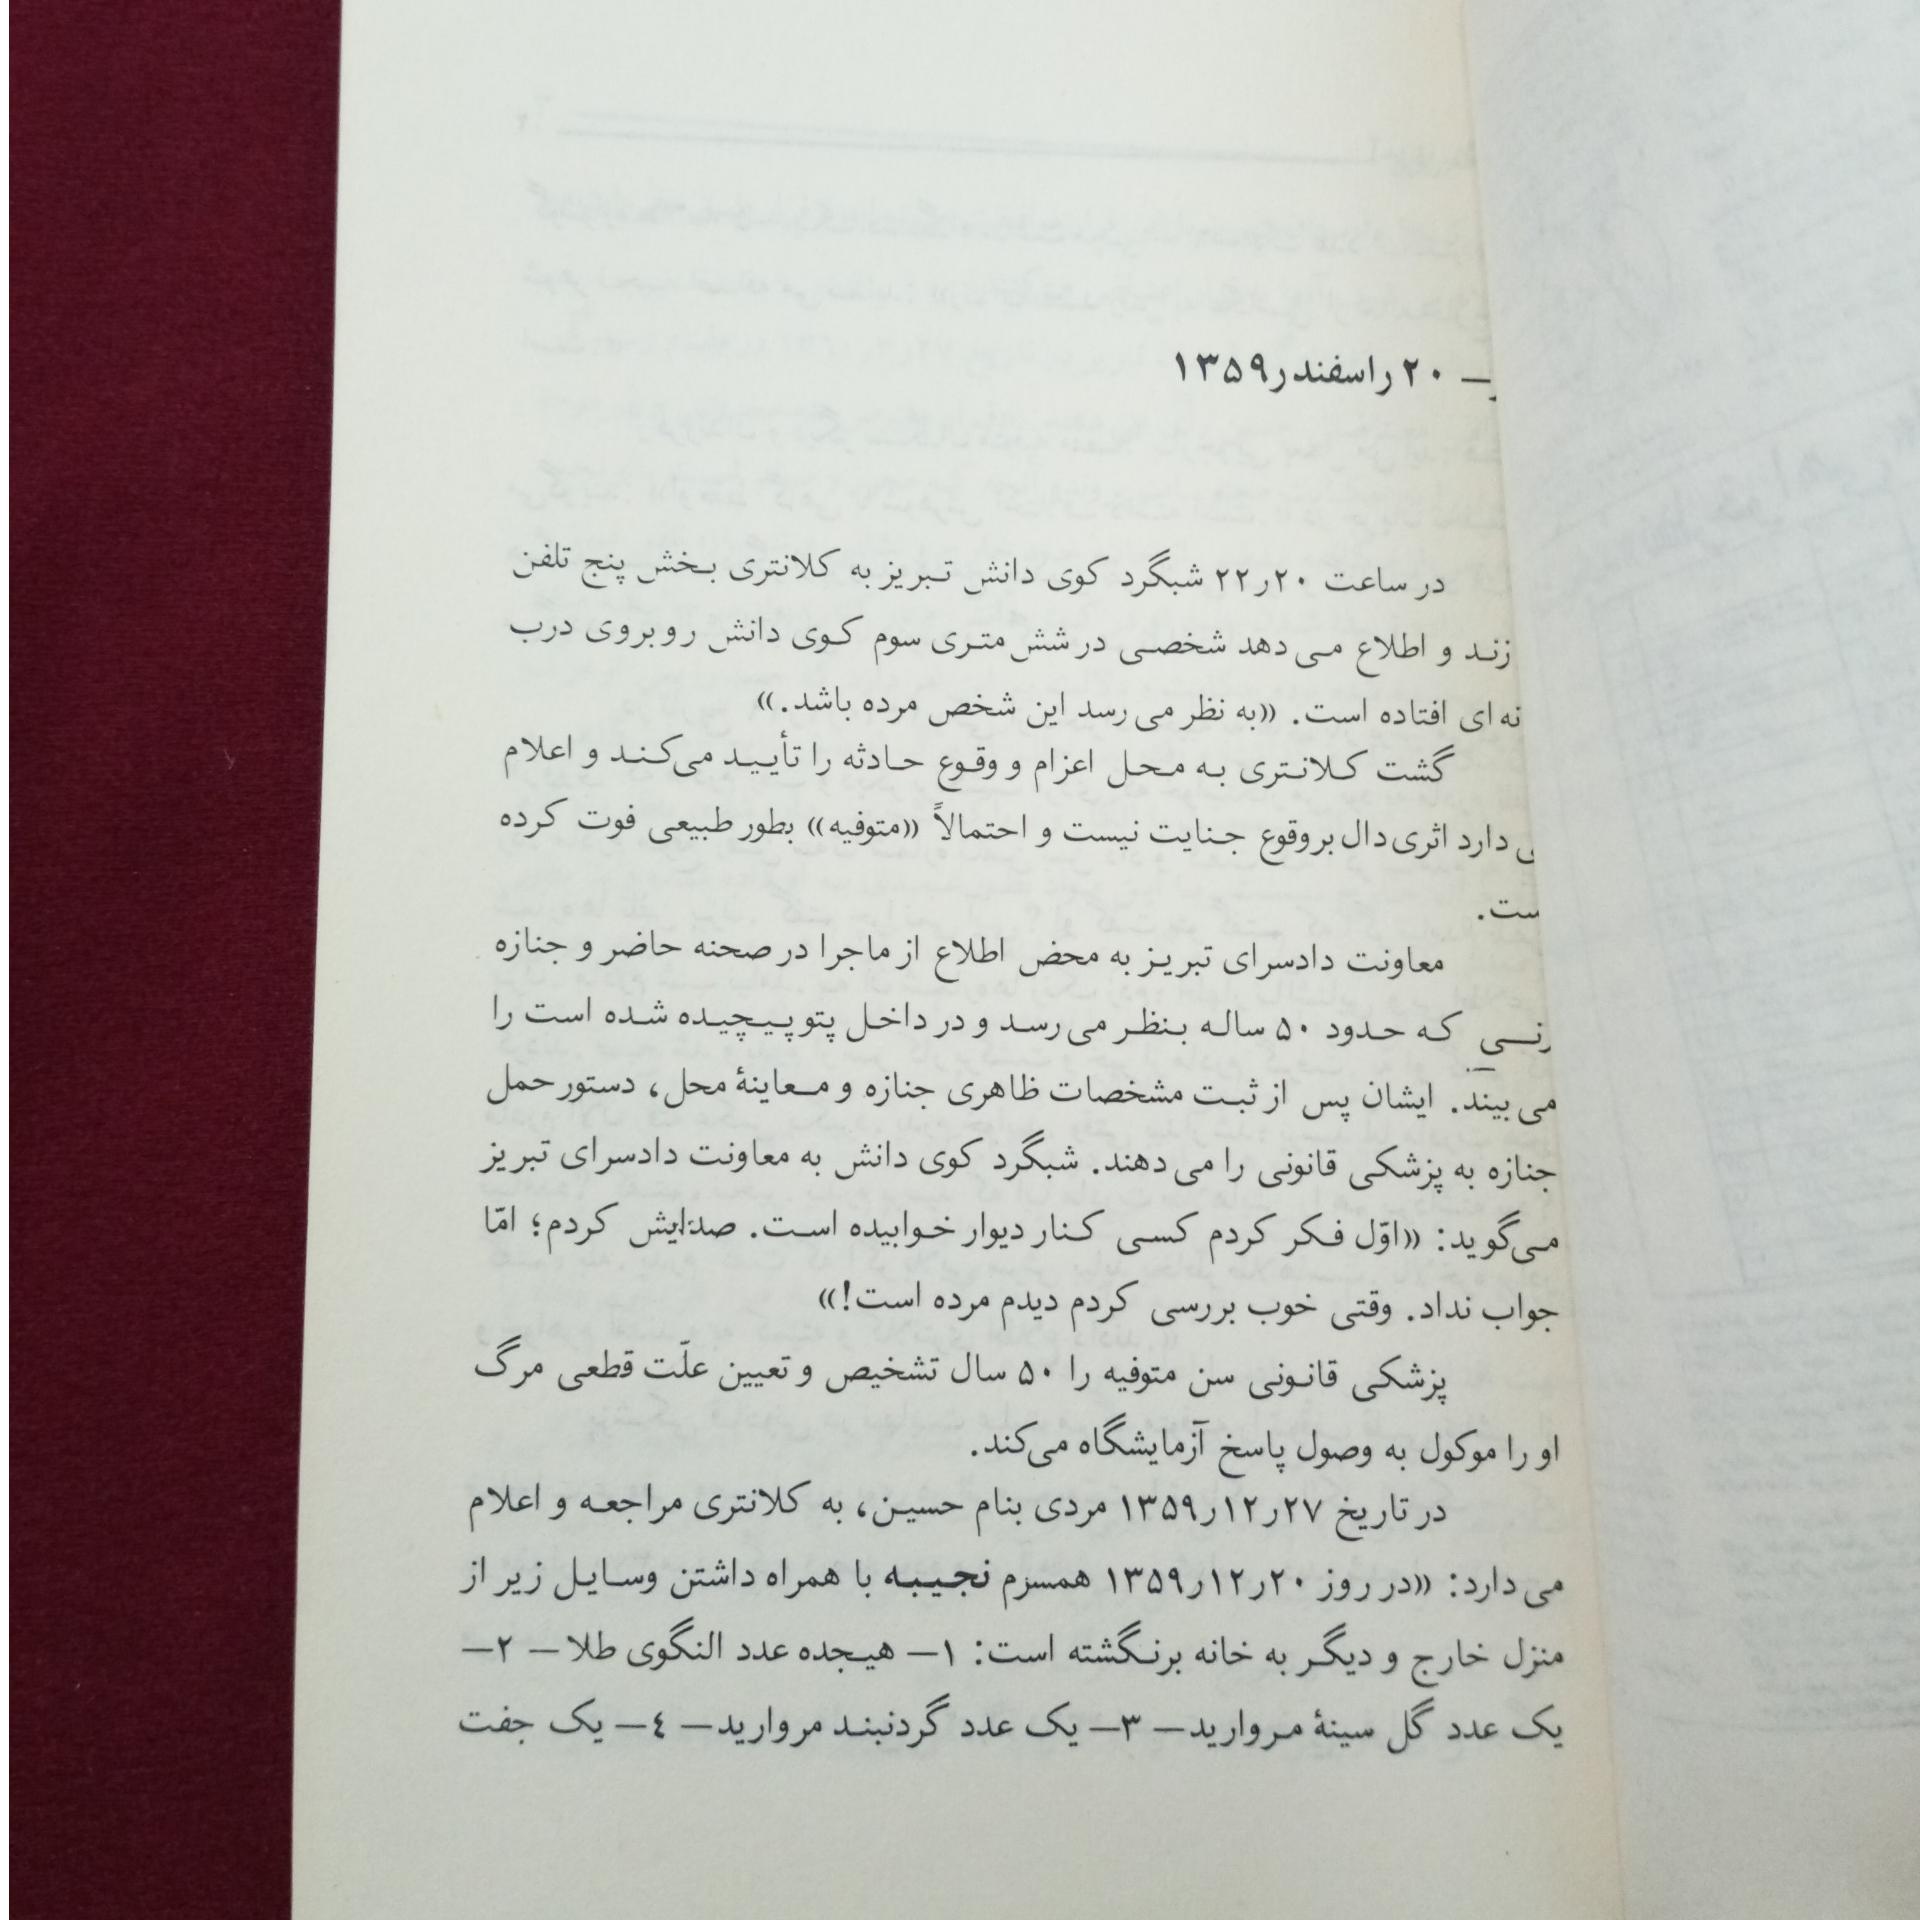 — ۲۰ ر اسفند ر ۱۳۵۹
در ساعت ۲۰ر۲۲ شبگرد کوی دانش تبریز به کلانتری بخش پنج تلفن
زند و اطلاع می دهد شخصی در شش متری سوم کوی دانش روبروی درب
نه ای افتاده است. «به نظر می رسد این شخص مرده باشد.»
گشت کلانتری به محل اعزام و وقوع حادثه را تأیید می‌کند و اعلام
ی دارد اثری دال بر وقوع جنایت نیست و احتمالاً «متوفیه» بطور طبیعی فوت کرده
ست.
معاونت دادسرای تبریز به محض اطلاع از ماجرا در صحنه حاضر و جنازه
زنی که حدود ۵۰ ساله بنظر می رسد و در داخل پتو پیچیده شده است را
می بیند. ایشان پس از ثبت مشخصات ظاهری جنازه و معاینهٔ محل، دستور حمل
جنازه به پزشکی قانونی را می دهند. شبگرد کوی دانش به معاونت دادسرای تبریز
می‌گوید: «اوّل فکر کردم کسی کنار دیوار خوابیده است. صدایش کردم؛ امّا
جواب نداد. وقتی خوب بررسی کردم دیدم مرده است!»
پزشکی قانونی سن متوفیه را ۵۰ سال تشخیص و تعیین علّت قطعی مرگ
او را موکول به وصول پاسخ آزمایشگاه می‌کند.
در تاریخ ۲۷ر۱۲ر۱۳۵۹ مردی بنام حسین، به کلانتری مراجعه و اعلام
می دارد: «در روز ۲۰ر۱۲ر۱۳۵۹ همسرم نجیبه با همراه داشتن وسایل زیر از
منزل خارج و دیگر به خانه برنگشته است: ۱— هیجده عدد النگوی طلا— ۲—
یک عدد گل سینهٔ مروارید— ۳— یک عدد گردنبند مروارید— ٤— یک جفت